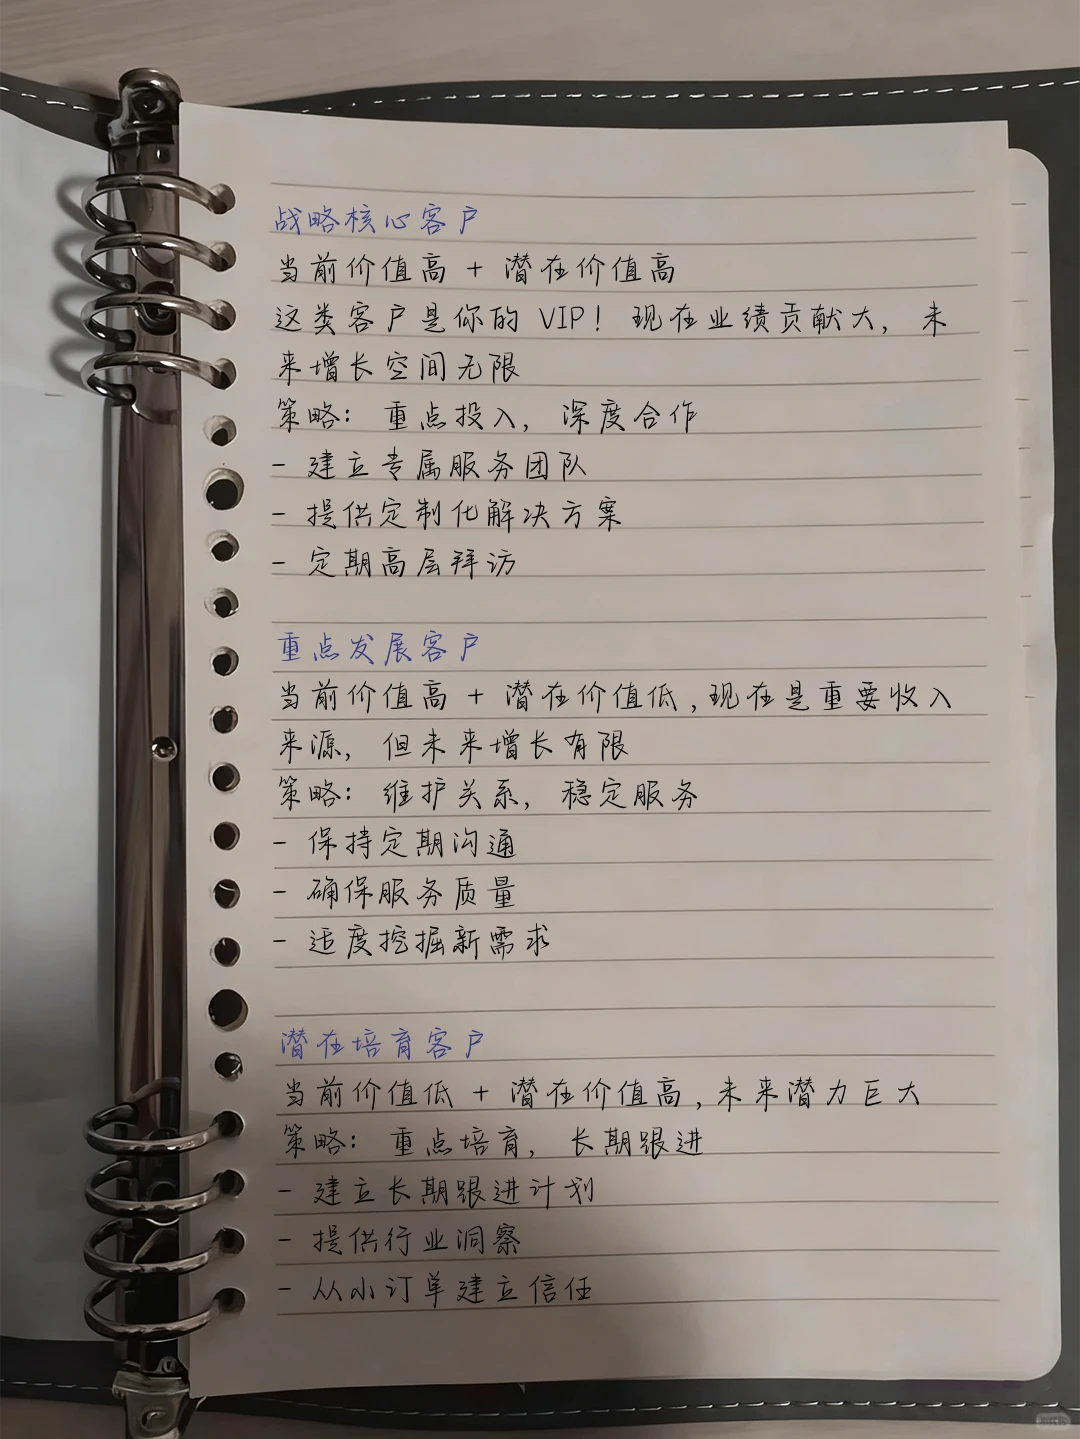 战略核心客户
当前价值高 + 潜在价值高
这类客户是你的 VIP！现在业绩贡献大，未
来增长空间无限
策略：重点投入，深度合作
- 建立专属服务团队
- 提供定制化解决方案
- 定期高层拜访
重点发展客户
当前价值高 + 潜在价值低,现在是重要收入
来源，但未来增长有限
策略：维护关系，稳定服务
- 保持定期沟通
- 确保服务质量
- 适度挖掘新需求
潜在培育客户
当前价值低 + 潜在价值高,未来潜力巨大
策略：重点培育，长期跟进
- 建立长期跟进计划
- 提供行业洞察
- 从小订单建立信任